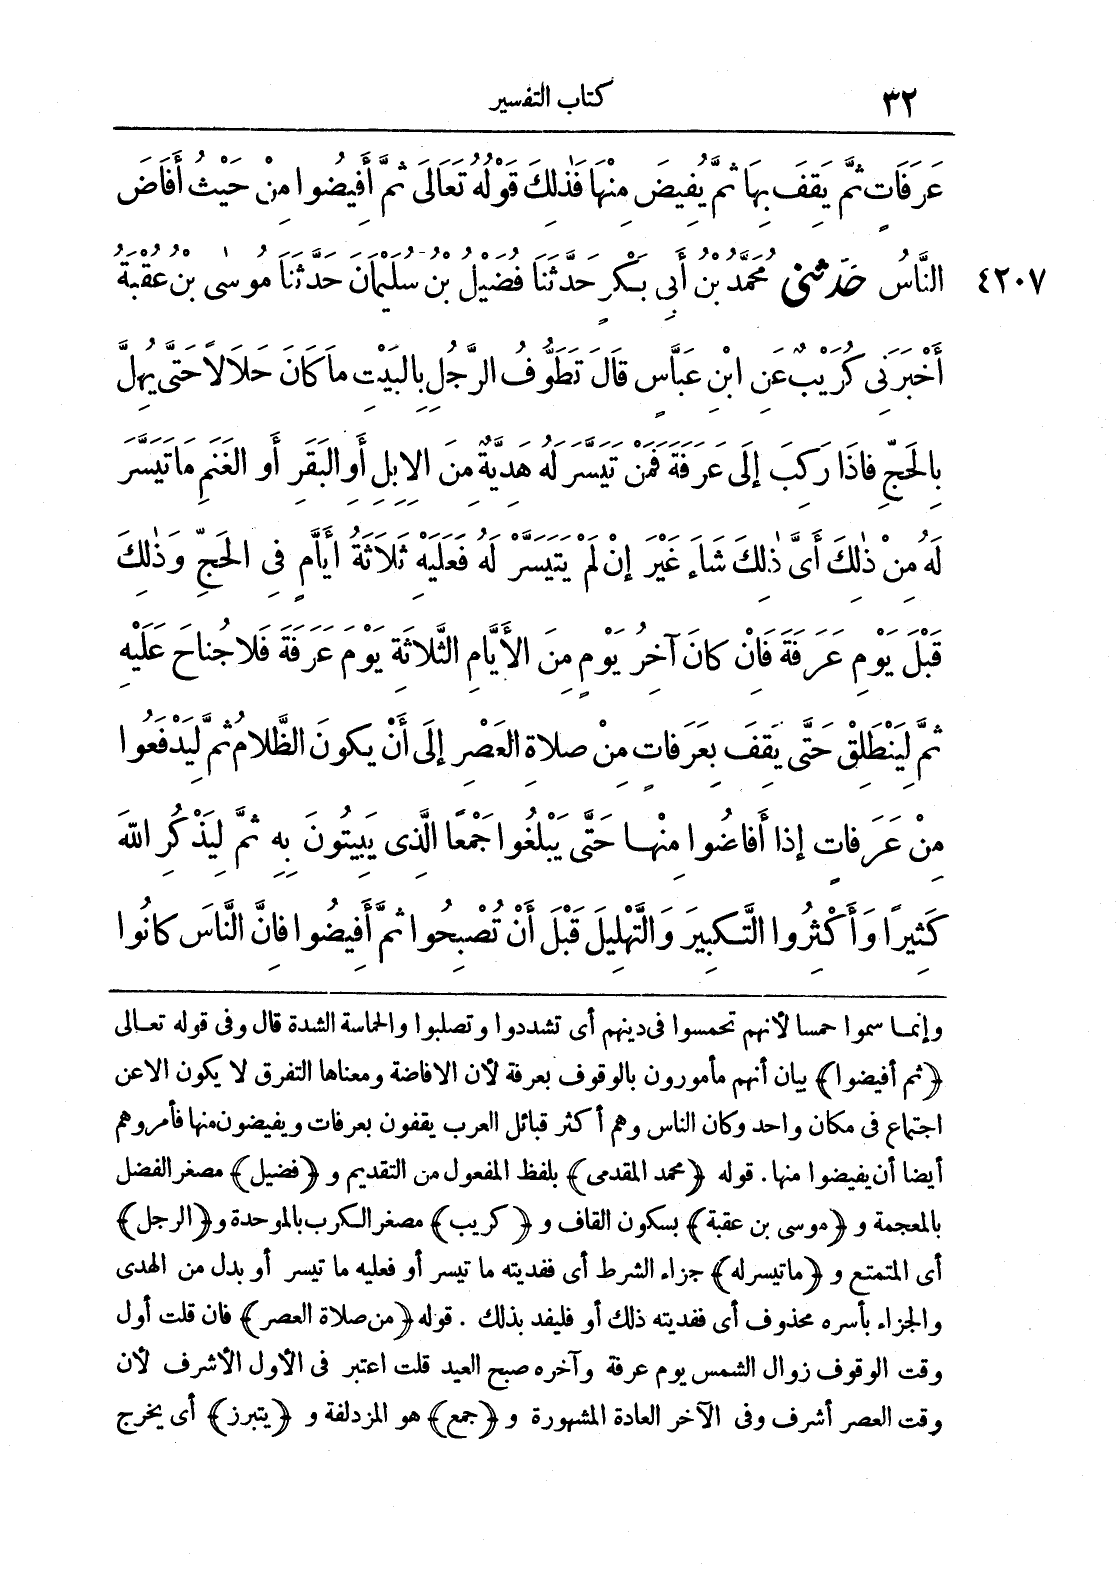 ٣٢ كتاب التفسير
عَرَفَاتٍ ثُمَّ يَقِفَ بِهَا ثُمَّ يُفِيضَ مِنْهَا فَذٰلِكَ قَوْلُهُ تَعَالَى ثُمَّ أَفِيضُوا مِنْ حَيْثُ أَفَاضَ
٤٢٠٧ النَّاسُ حَدَّثَنِى مُحَمَّدُ بْنُ أَبِى بَكْرٍ حَدَّثَنَا فُضَيْلُ بْنُ سُلَيْمَانَ حَدَّثَنَا مُوسَى بْنُ عُقْبَةَ
أَخْبَرَنِى كُرَيْبٌ عَنِ ابْنِ عَبَّاسٍ قَالَ تَطَوُّفُ الرَّجُلِ بِالبَيْتِ مَا كَانَ حَلَالًا حَتَّى يُهِلَّ
بِالحَجِّ فَاذَا رَكِبَ إِلَى عَرَفَةَ فَمَنْ تَيَسَّرَ لَهُ هَدِيَّةٌ مِنَ الِابِلِ أَوِ البَقَرِ أَوِ الغَنَمِ مَا تَيَسَّرَ
لَهُ مِنْ ذٰلِكَ أَىَّ ذٰلِكَ شَاءَ غَيْرَ إِنْ لَمْ يَتَيَسَّرْ لَهُ فَعَلَيْهِ ثَلَاثَةُ أَيَّامٍ فِى الحَجِّ وَذٰلِكَ
قَبْلَ يَوْمِ عَرَفَةَ فَانْ كَانَ آخِرُ يَوْمٍ مِنَ الأَيَّامِ الثَّلَاثَةِ يَوْمَ عَرَفَةَ فَلَا جُنَاحَ عَلَيْهِ
ثُمَّ لِيَنْطَلِقْ حَتَّى يَقِفَ بِعَرَفَاتٍ مِنْ صَلَاةِ العَصْرِ إِلَى أَنْ يَكُونَ الظَّلَامُ ثُمَّ لِيَدْفَعُوا
مِنْ عَرَفَاتٍ إِذَا أَفَاضُوا مِنْهَا حَتَّى يَبْلُغُوا جَمْعًا الَّذِى يَبِيتُونَ بِهِ ثُمَّ لِيَذْكُرِ اللهَ
كَثِيرًا وَأَكْثِرُوا التَّكْبِيرَ وَالتَّهْلِيلَ قَبْلَ أَنْ تُصْبِحُوا ثُمَّ أَفِيضُوا فَانَّ النَّاسَ كَانُوا
وإنما سموا حمسا لأنهم تحمسوا فى دينهم أى تشددوا وتصلبوا والحماسة الشدة قال وفى قوله تعالى
﴿ثم أفيضوا﴾ بيان أنهم مأمورون بالوقوف بعرفة لأن الافاضة ومعناها التفرق لا يكون الاعن
اجتماع فى مكان واحد وكان الناس وهم أكثر قبائل العرب يقفون بعرفات ويفيضون منها فأمروهم
أيضا أن يفيضوا منها. قوله ﴿محمد المقدمى﴾ بلفظ المفعول من التقديم و ﴿فضيل﴾ مصغر الفضل
بالمعجمة و ﴿موسى بن عقبة﴾ بسكون القاف و ﴿كريب﴾ مصغر الكرب بالموحدة و﴿الرجل﴾
أى المتمتع و ﴿ماتيسرله﴾ جزاء الشرط أى ففديته ما تيسر أو فعليه ما تيسر أو بدل من الهدى
والجزاء بأسره محذوف أى ففديته ذلك أو فليفد بذلك . قوله ﴿من صلاة العصر﴾ فان قلت أول
وقت الوقوف زوال الشمس يوم عرفة وآخره صبح العيد قلت اعتبر فى الأول الأشرف لأن
وقت العصر أشرف وفى الآخر العادة المشهورة و ﴿جمع﴾ هو المزدلفة و ﴿يتبرز﴾ أى يخرج